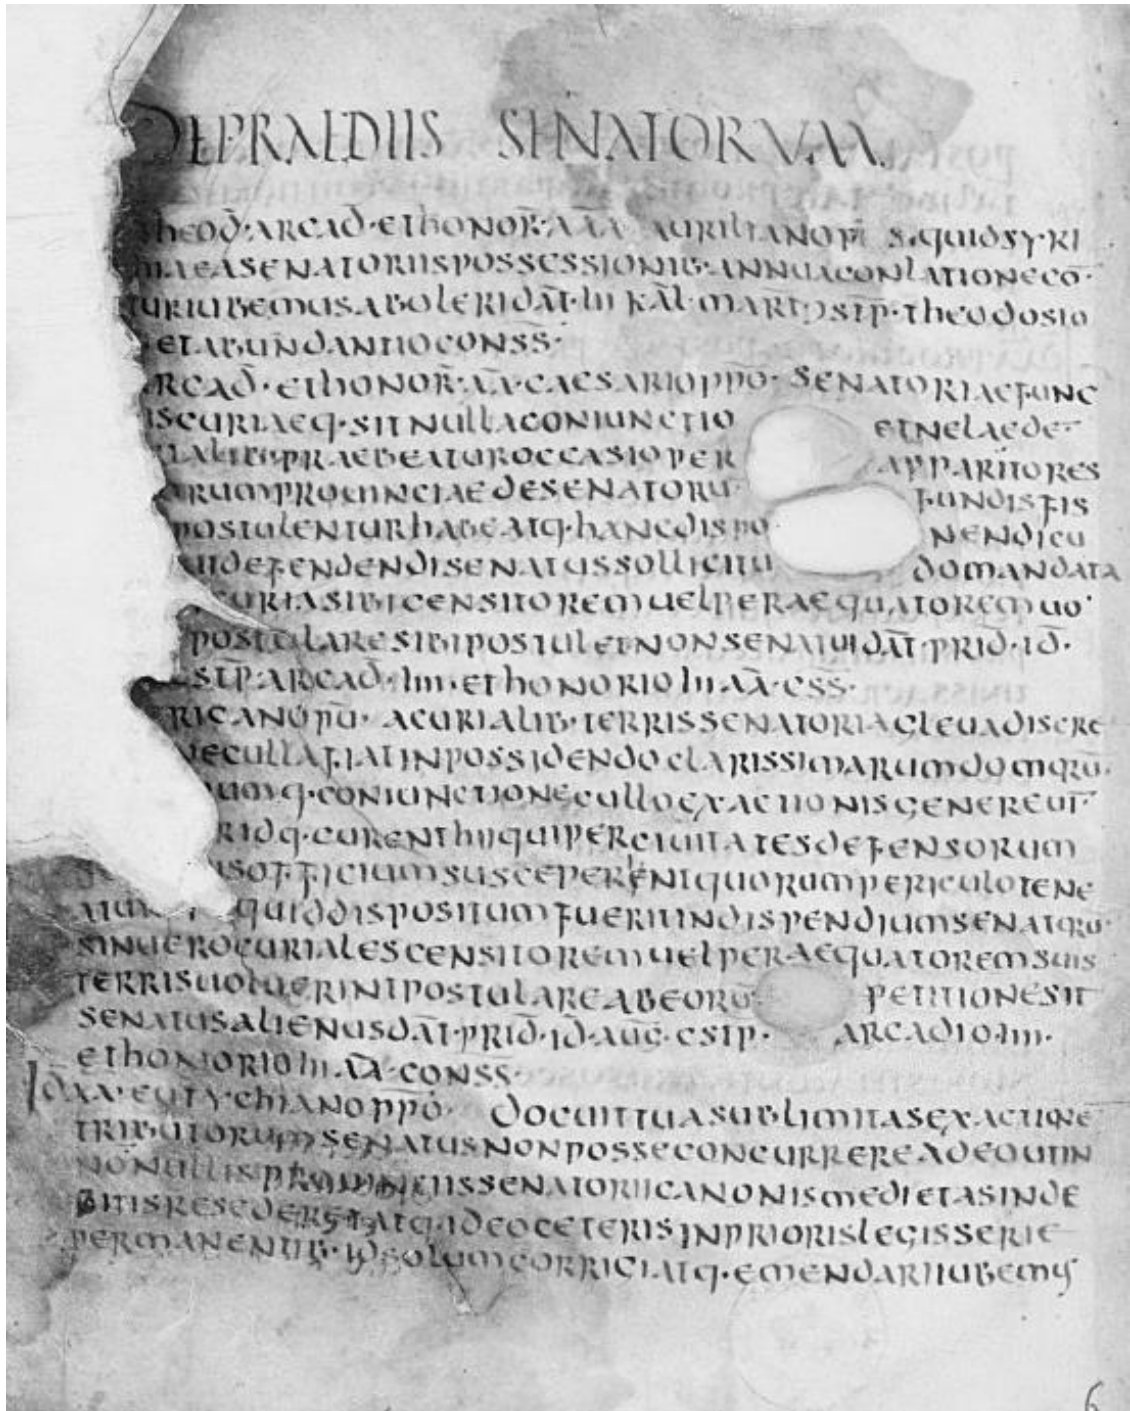 DEPRAEDIIS SENATORUM.
theod̄·arcad̄·ethonor̄·āāā aurelianop̄ū s·quidsy·ri
maeasenatoriispossessionib·annuaconlationecō·
turiubemusaboleridat̄·iii kal̄·mart̄·c̄stp̄·theodosio
etabundantioconss̄·
arcad̄·ethonor̄·āā·caesarioppō·senatoriaefunc
iscuriaeq·sitnullaconiunctio etnelaede-
ialib·praebeaturoccasioper apparitores
arumprouinciaedesenatorū fundisfis
postulenturhabeatq·hancdispo nendicu
uidefendendisenatussollicitu domandata
curiasibicensitoremuelperaequatoremuo·
postulāresibipostuletnonsenatuidat̄·prid̄·id̄·
stp̄·arcad̄·iiii·ethonorioiiiāā·css̄·
ricanopū·acurialib·terrissenatoriaglebadiscre
necullafiatinpossidendoclarissimarumdomorū·
umq·coniunctionecullo exactionisgenereut-
ridq·curenthiiquiperciuitatesdefensorum
usofficiumsusceperentquorumpericulotene
atur quiddispositumfueritindispendiumsenatorū·
sinuerocurialescensitoremuelperaequatoremsuis
terrisuoluerintpostulareabeorū petitionesit
senatusalienusdat̄·prid̄·id̄·auḡ·cstp̄· arcadio·iiii·
ethonorioiii·āā·conss̄·
Id̄āā·eutychianoppō· docuittuasublimitasexactionē
tributorumsenatusnonposseconcurrereadeoutin
nonullisprouinciissenatoriicanonismedietasinde
bitisresederetatqideoceterisinpriorislegisserie
permanentib·idsolumcorrigiatq·emendariiubemus
6